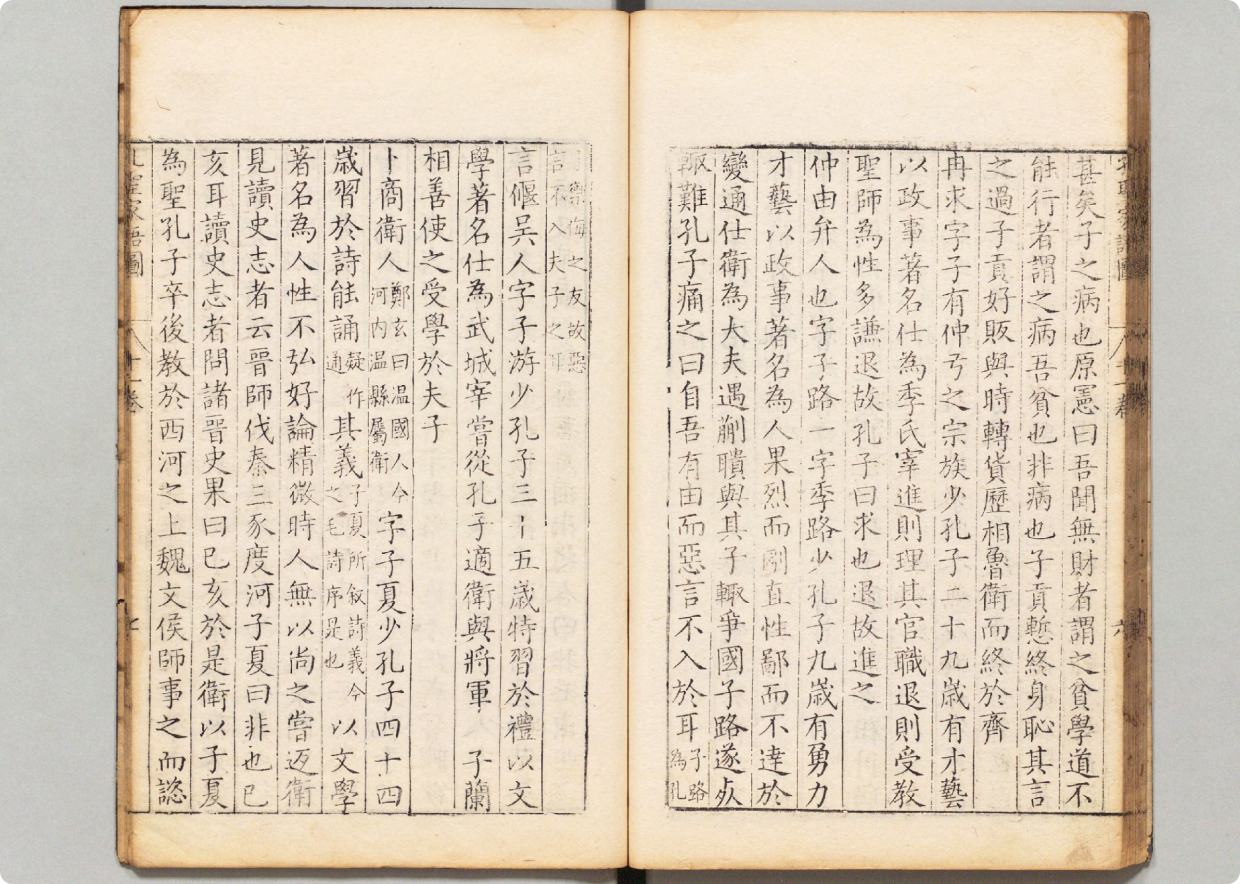 甚矣子之病也原憲曰吾聞無財者謂之貧學道不
能行者謂之病吾貧也非病也子貢慙終身恥其言
之過子貢好販與時轉貨歷相魯衛而終於齊
冉求字子有仲弓之宗族少孔子二十九歲有才藝
以政事著名仕為季氏宰進則理其官職退則受教
聖師為性多謙退故孔子曰求也退故進之
仲由弁人也字子路一字季路少孔子九歲有勇力
才藝以政事著名為人果烈而剛直性鄙而不達於
變通仕衛為大夫遇蒯聵與其子輒爭國子路遂死
輒難孔子痛之曰自吾有由而惡言不入於耳子路為孔
禦侮之友故惡言不入夫子之耳
言偃吳人字子游少孔子三十五歲特習於禮以文
學著名仕為武城宰嘗從孔子適衛與將軍 子蘭
相善使之受學於夫子
卜商衛人鄭玄曰温國人今河内温縣屬衛字子夏少孔子四十四
歲習於詩能誦疑作通其義子夏所叙詩義今之毛詩序是也以文學
著名為人性不弘好論精微時人無以尚之嘗返衛
見讀史志者云晉師伐秦三豕度河子夏曰非也己
亥耳讀史志者問諸晉史果曰己亥於是衛以子夏
為聖孔子卒後教於西河之上魏文侯師事之而諮